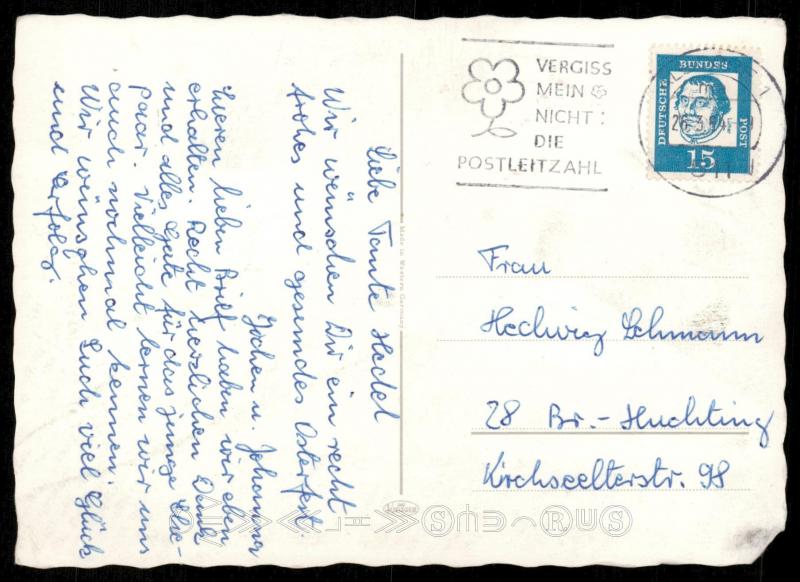 Liebe Tante Hedel
Wir wünschen Dir ein recht
frohes und gesundes Osterfest.
Jochen u. Johanna
Lieren lieben Brief haben wir eben
erhalten. Recht herzlichen Dank
und alles Gute für das junge Ehe-
paar. Vielleicht lernen wir uns
auch nochmal kennen.
Wir wünschen Euch viel Glück
und Erfolg.
Made in Western Germany
VERGISS
MEIN
NICHT:
DIE
POSTLEITZAHL
DEUTSCHE BUNDESPOST
15
Frau
Hedwig Lehmann
28 Br.-Huchting
Kirchseelterstr. 98